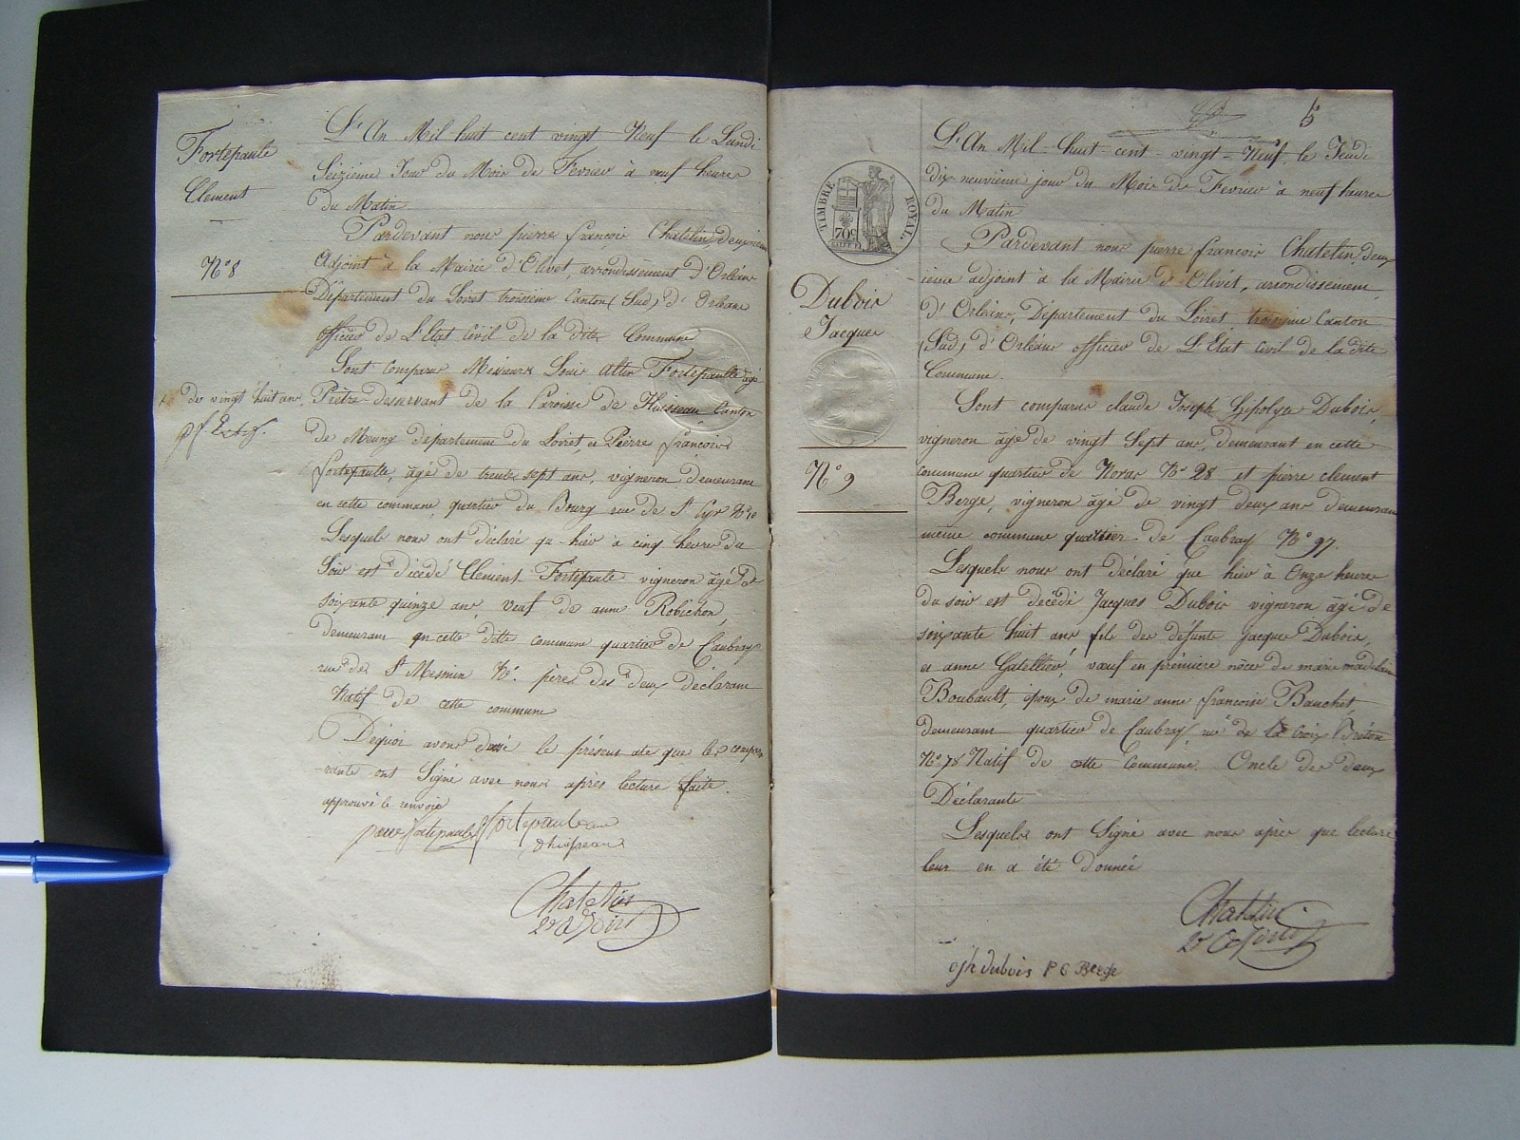 Fortepaule
Clement
N° 8
L'An Mil huit cent vingt Neuf le Lundi
Seizieme Jour du Mois de Fevrier à neuf heures
du Matin
Pardevant nous pierre françois Chatelin deuxieme
Adjoint à la Mairie d'Olivet, arrondissement d'Orléans
Département du Loiret troisieme Canton (Sud) d'Orléans
officier de L'Etat Civil de la dite Commune
Sont comparus Messieurs Louis Fortepaulle agé
de vingt huit ans
Prêtre desservant de la Paroisse de Huisseau Canton
de Meung département du Loiret, et Pierre françois
fortepaulle, âgé de trente sept ans, vigneron demeurant
en cette commune, quartier du Bourg rue de St Cyr N° 10
Lesquels nous ont déclaré qu-hier à cinq heures du
Soir est décédé Clement Fortepaule vigneron âgé de
soixante quinze ans, veuf de anne Robichon,
demeurant en cette ditte commune quartier de Caubray
rue de St Mesmin N°. père des deux déclarans
Natif de cette commune
Dequoi avons dressé le présent ate que les compa
-rants ont Signé avec nous après lecture faite.
approuvé le renvoie
pierre fortepaule fortepaule
d'huisseau
Chatelin
2e adjoint
5
TIMBRE ROYAL
70c
Dubois
Jacques
N° 9
L'An Mil-huit-cent-vingt-Neuf, le Jeudi
dix neuvieme jour du Mois de Fevrier à neuf heures
du Matin
Pardevant nous pierre françois Chatelin deux
ieme adjoint à la Mairie d'Olivet, arrondissement
d'Orléans, Département du Loiret troisieme Canton
(Sud) d'Orléans officier de L'Etat Civil de la dite
Commune.
Sont comparus claude Joseph Dubois,
vigneron âgé de vingt Sept ans, demeurant en cette
commune quartier de N° 28 et pierre clement
Berge, vigneron âgé de vingt deux ans demeurant
même commune quartier de Caubray N° 97.
Lesquels nous ont déclaré que hier à Onze heures
du soir est décédé Jacques Dubois vigneron âgé de
soixante huit ans fils des défunts Jacques Dubois,
et anne Gatellier, vœuf en prémiere nôces de marie madelaine
Boubault, époux de marie anne françoise Bauchet,
demeurant quartier de Caubray, rue de la Croix Bréton
N° 78 Natif de cette Commune Oncle des deux
Déclarants
Lesquels ont Signé avec nous après que lecture
leur en a été donnée
Chatelin
2e adjoint
cjh dubois P C Berge